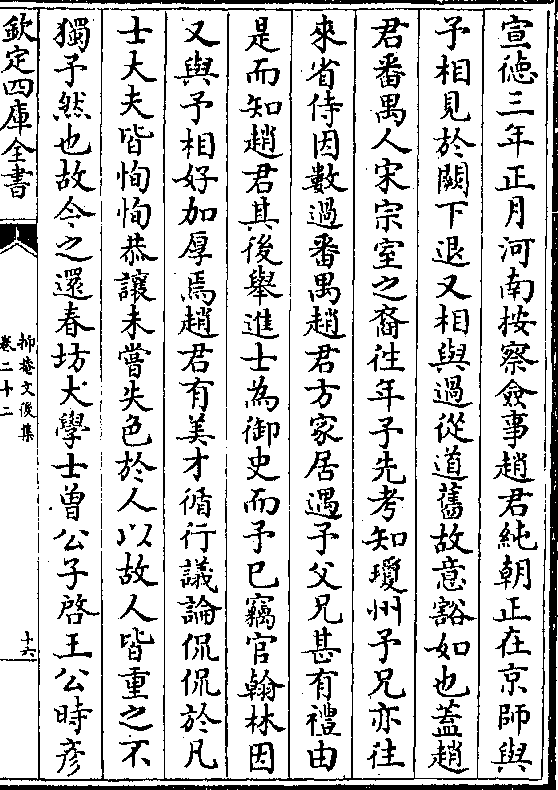 宣徳三年正月河南按察僉事趙君純朝正在京師與
予相見於闕下退又相與過從道舊故意豁如也蓋趙
君番禺人宋宗室之裔徃年予先考知瓊州予兄亦徃
來省侍因數過番禺趙君方家居遇予父兄甚有禮由
是而知趙君其後舉進士為御史而予已竊官翰林因
又與予相好加厚焉趙君有美才循行議論侃侃於凡
士大夫皆恂恂恭讓未嘗失色於人以故人皆重之不
獨予然也故今之還春坊大學士曽公子啓王公時彦
欽定四庫全書
抑菴文後集
卷二十二
十六